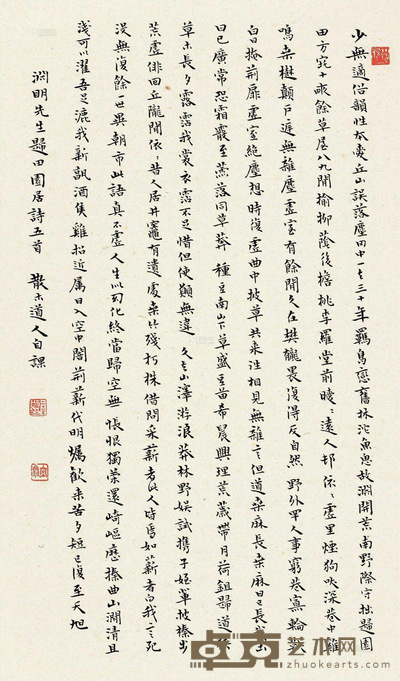 少無適俗韻性本愛丘山誤落塵网中一去三十年羈鳥戀舊林沱魚思故淵開荒南野際守拙歸園
田方宅十畝餘草屋八九間榆柳蔭後檐桃李羅堂前曖〻遠人邨依〻虛里煙狗吠深巷中雞
鳴桑樹顛戶庭無雜塵虛室有餘閒久在樊籠裏復得反自然 野外罕人事窮巷寡輪鞅
白日掩荊扉虛室絕塵想時復虛曲中披草共來往相見無雜言但道桑麻長桑麻日已長我土
日已廣常恐霜霰至零落同草莽 種豆南山下草盛豆苗希晨興理荒薉帶月荷鉏歸道狹
草木長夕露霑我裳衣霑不足惜但使願無違 久去山澤游浪莽林野娛試携子姪輩披榛步
荒虛俳佪丘隴間依〻昔人居井竈有遺處桑竹殘朽株借問采薪者此人皆焉如薪者向我言死
沒無復餘一世異朝市此語真不虛人生似幻化終當歸空無 悵恨獨策還崎嶇歷榛曲山澗清且
淺可以濯吾足漉我新孰酒隻雞招近屬日入室中闇荊薪代明燭歡來苦夕短已復至天旭
淵明先生歸田園居詩五首 散木道人自課
卓克艺术网
zhuokearts.com